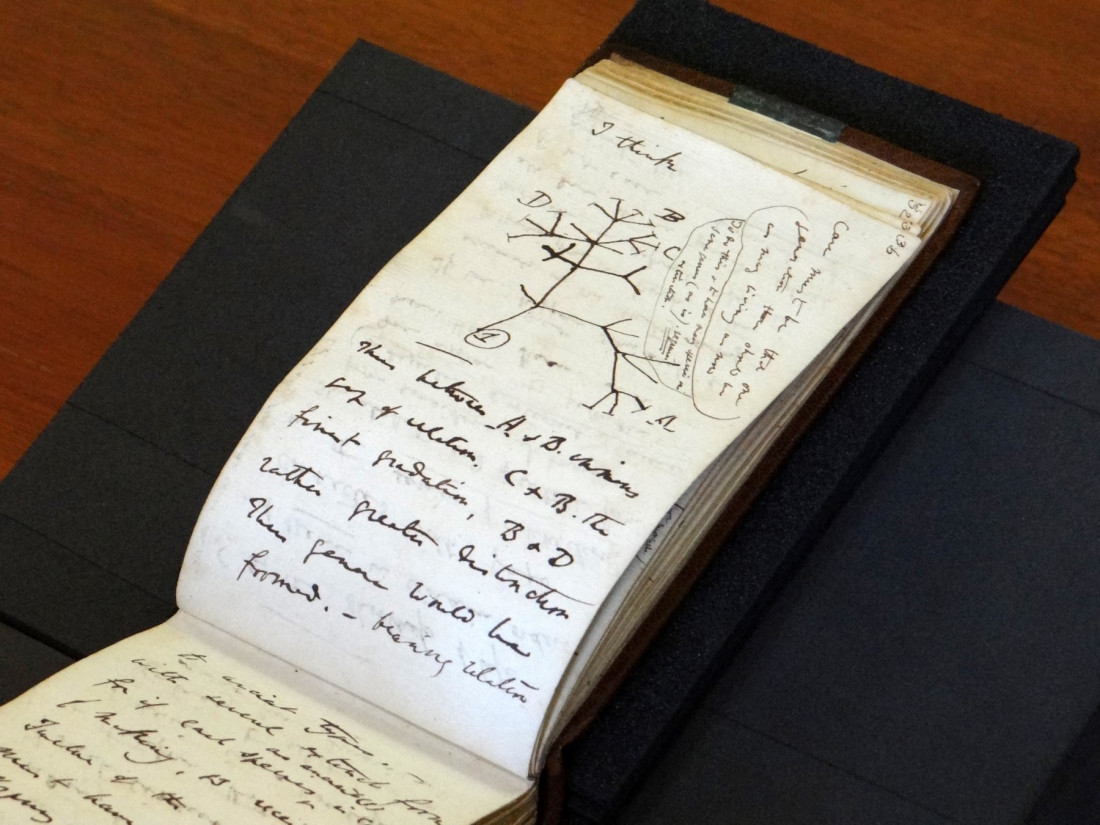 I think
D
B
C
A
1
36
Case must be that one
generation then should be
as many living as now
To do this & to have many species in
same genus (as is). requires
extinction.
Thus between A & B. immens
gap of relation. C & B. the
finest gradation, B & D
rather greater distinction
Thus genera would be
formed. — bearing relation
to ancient types. —
with several extinct forms
for if each species an ancient
( making, 13 recent
Twelve of the